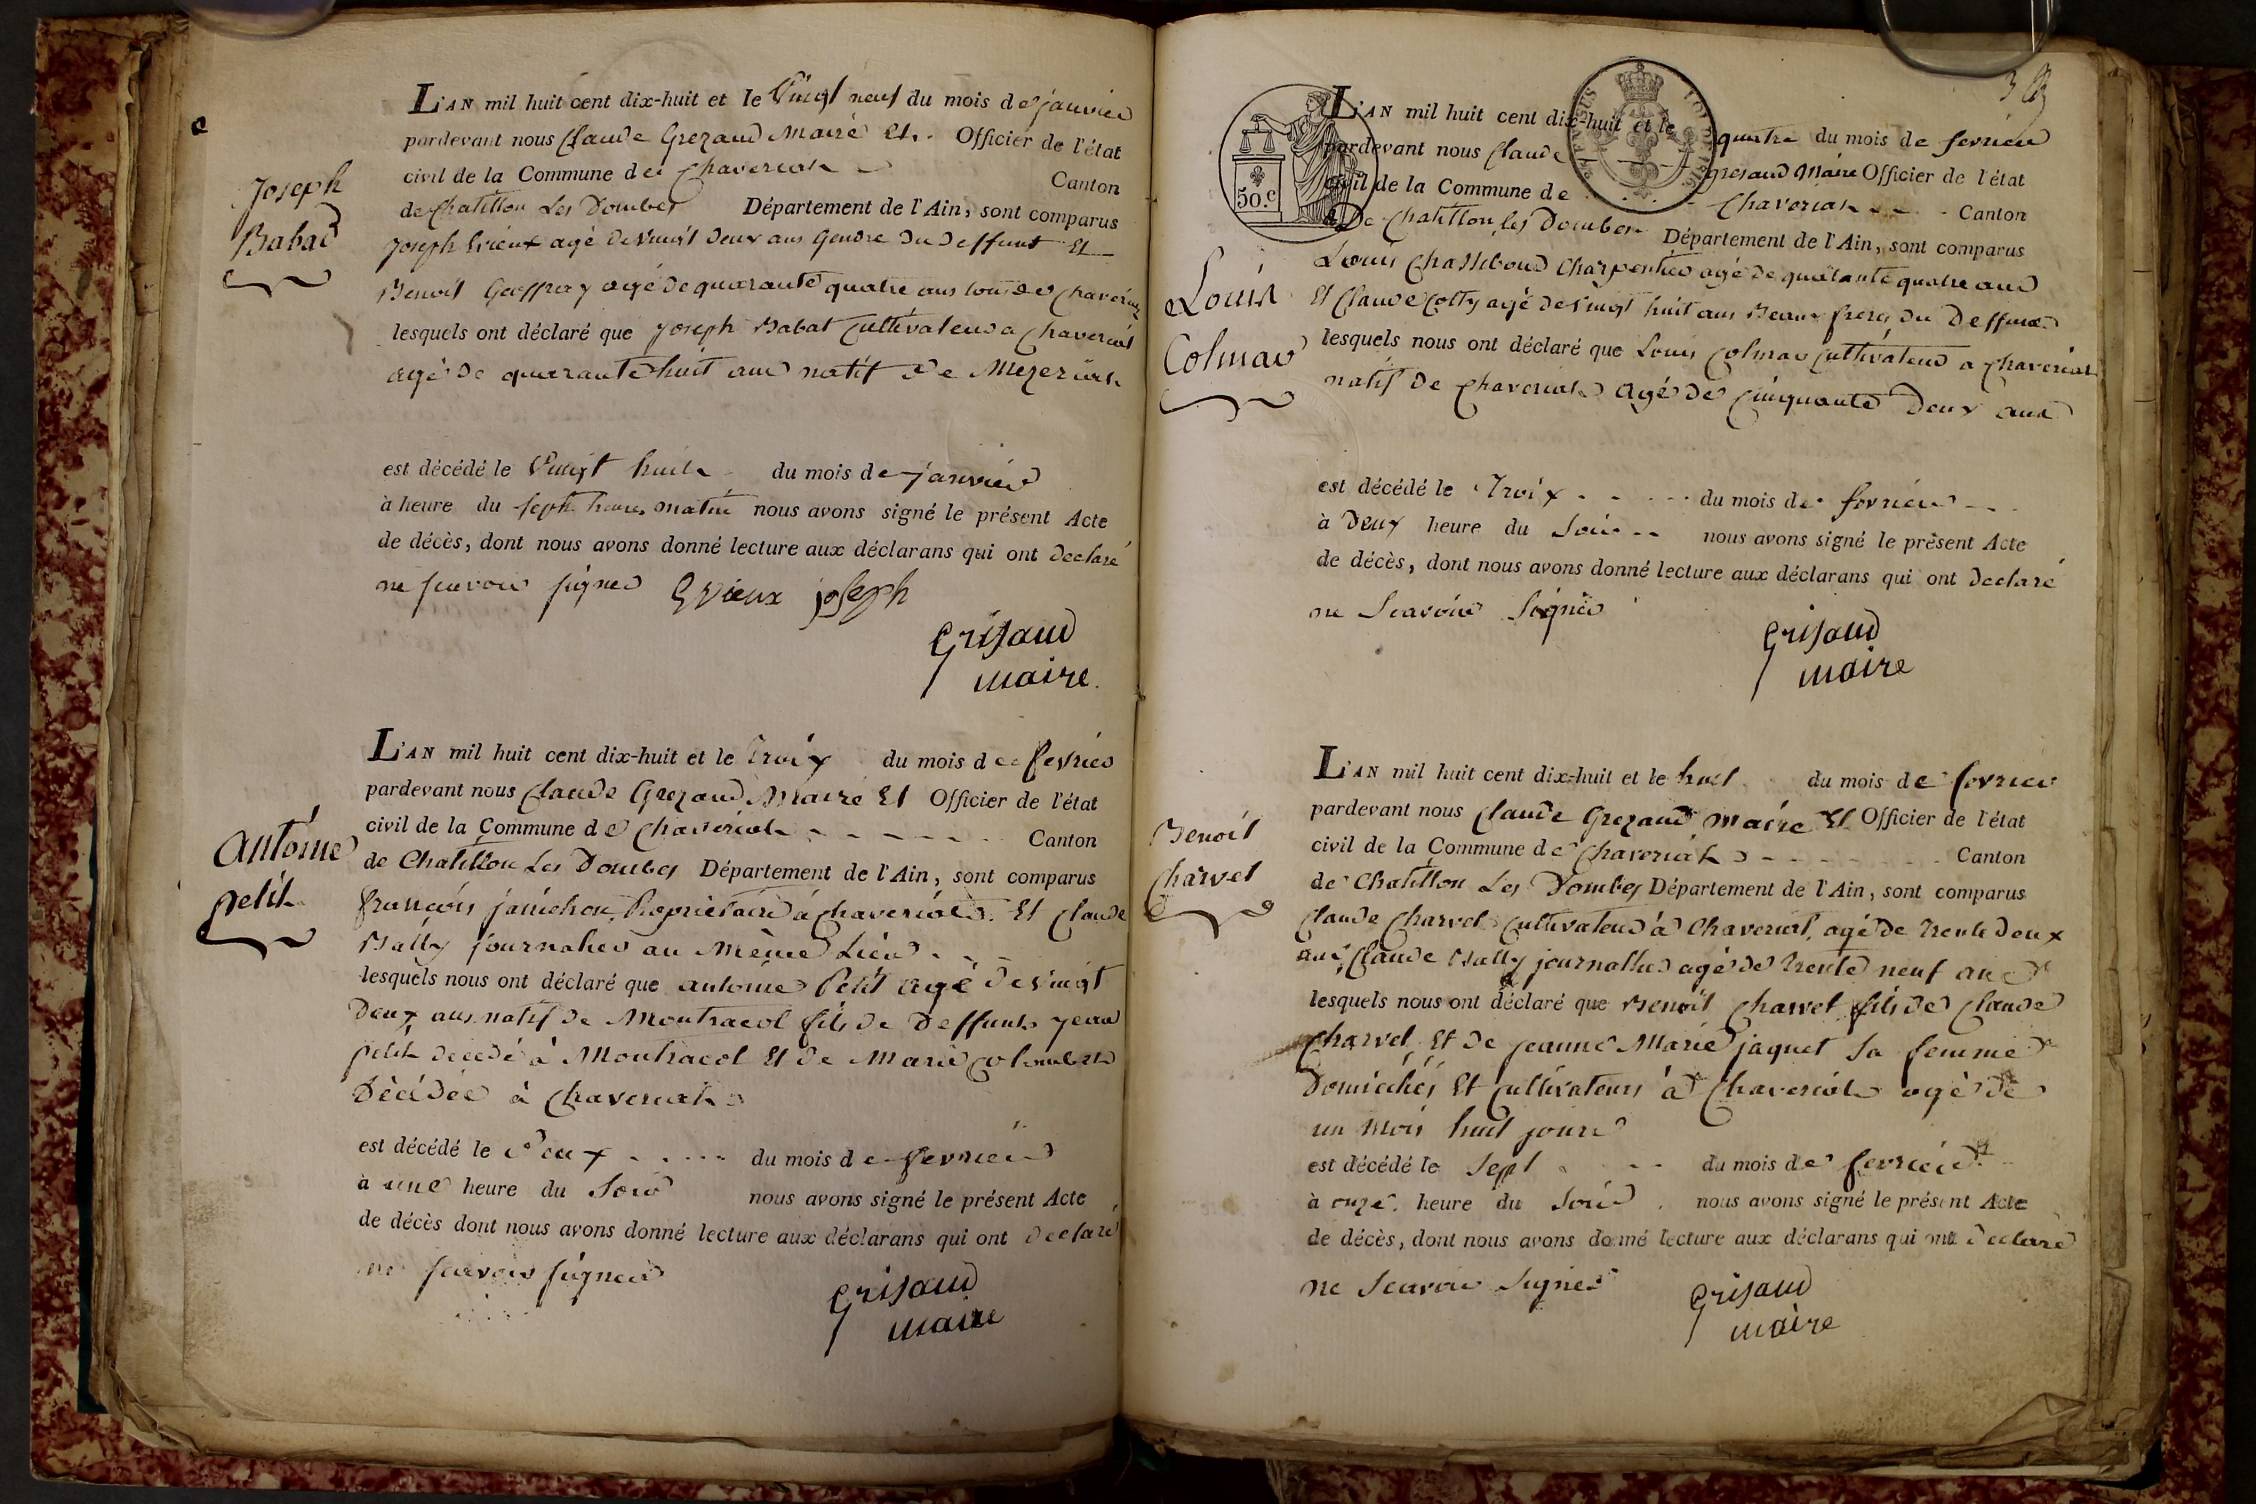 Joseph
Babad
L'AN mil huit cent dix-huit et le Vingt neuf du mois de janvier
pardevant nous Claude Grezaud Maire Et. Officier de l'état
civil de la Commune de Chaveriat Canton
de Chatillon Les Dombes Département de l'Ain, sont comparus
Joseph Evieux agé de vingt deux ans Gendre du deffunt Et
Benoit Geoffray agé de quarante quatre ans tous de Chaveriat
lesquels ont déclaré que Joseph Babat Cultivateur a Chaveriat
agé de quarante huit ans natif de Mezeriat
est décédé le Vingt huit du mois de janvier
à heure du sept heures matin nous avons signé le présent Acte
de décès, dont nous avons donné lecture aux déclarans qui ont declaré
ne scavoir signer Evieux joseph
Grisaud
maire.
Antoine
petit
L'AN mil huit cent dix-huit et le Troix du mois de fevrier
pardevant nous Claude Grezaud Maire Et Officier de l'état
civil de la Commune de Chaveriat Canton
de Chatillon Les Dombes Département de l'Ain, sont comparus
françois janichon Proprietaire à Chaveriat. Et Claude
Bally journalier au Même Lieu
lesquels nous ont déclaré que antoine Petit agé de vingt
Deux ans natif de Montracol fils de Deffunts jean
petit decedé à Montracol Et de Marie
Décédée à Chaveriat
est décédé le Deux du mois de fevrier
à une heure du Soir nous avons signé le présent Acte
de décès dont nous avons donné lecture aux déclarans qui ont declaré
ne scavoir signer
Grisaud
maire
3
50.C
Louis
Colmar
L'AN mil huit cent dix-huit et le quatre du mois de fevrier
pardevant nous Claude gresaud Maire Officier de l'état
civil de la Commune de Chaveriat Canton
de De Chatillon les Dombes Département de l'Ain, sont comparus
Louis Chassiboud Charpentier agé de quarante quatre ans
Et Claude Colty agé de vingt huit ans Beaux freres du Deffunt
lesquels nous ont déclaré que Louis Colmar Cultivateur a Chaveriat
natif de Chaveriat Agé de Cinquante Deux ans
est décédé le Troix du mois de fevrier
à Deux heure du Soir nous avons signé le présent Acte
de décès, dont nous avons donné lecture aux déclarans qui ont declaré
ne Scavoir Signer
Grisaud
maire
Benoit
Charvet
L'AN mil huit cent dix-huit et le huit du mois de fevrier
pardevant nous Claude Grezaud Maire Et Officier de l'état
civil de la Commune de Chaveriat Canton
de Chatillon Les Dombes Département de l'Ain, sont comparus
Claude Charvet Cultivateur à Chaveriat, agé de trente deux
ans, Claude Bally journallier agé de trente neuf ans
lesquels nous ont déclaré que Benoit Charvet fils de Claude
Charvet Et de jeanne Marie jaquet Sa femme
Domiciliés Et Cultivateurs à Chaveriat agé de
un Mois huit jours
est décédé le Sept du mois de fevrier
à onze heure du Soir nous avons signé le présent Acte
de décès, dont nous avons donné lecture aux déclarans qui ont declaré
ne Scavoir Signer
Grisaud
maire